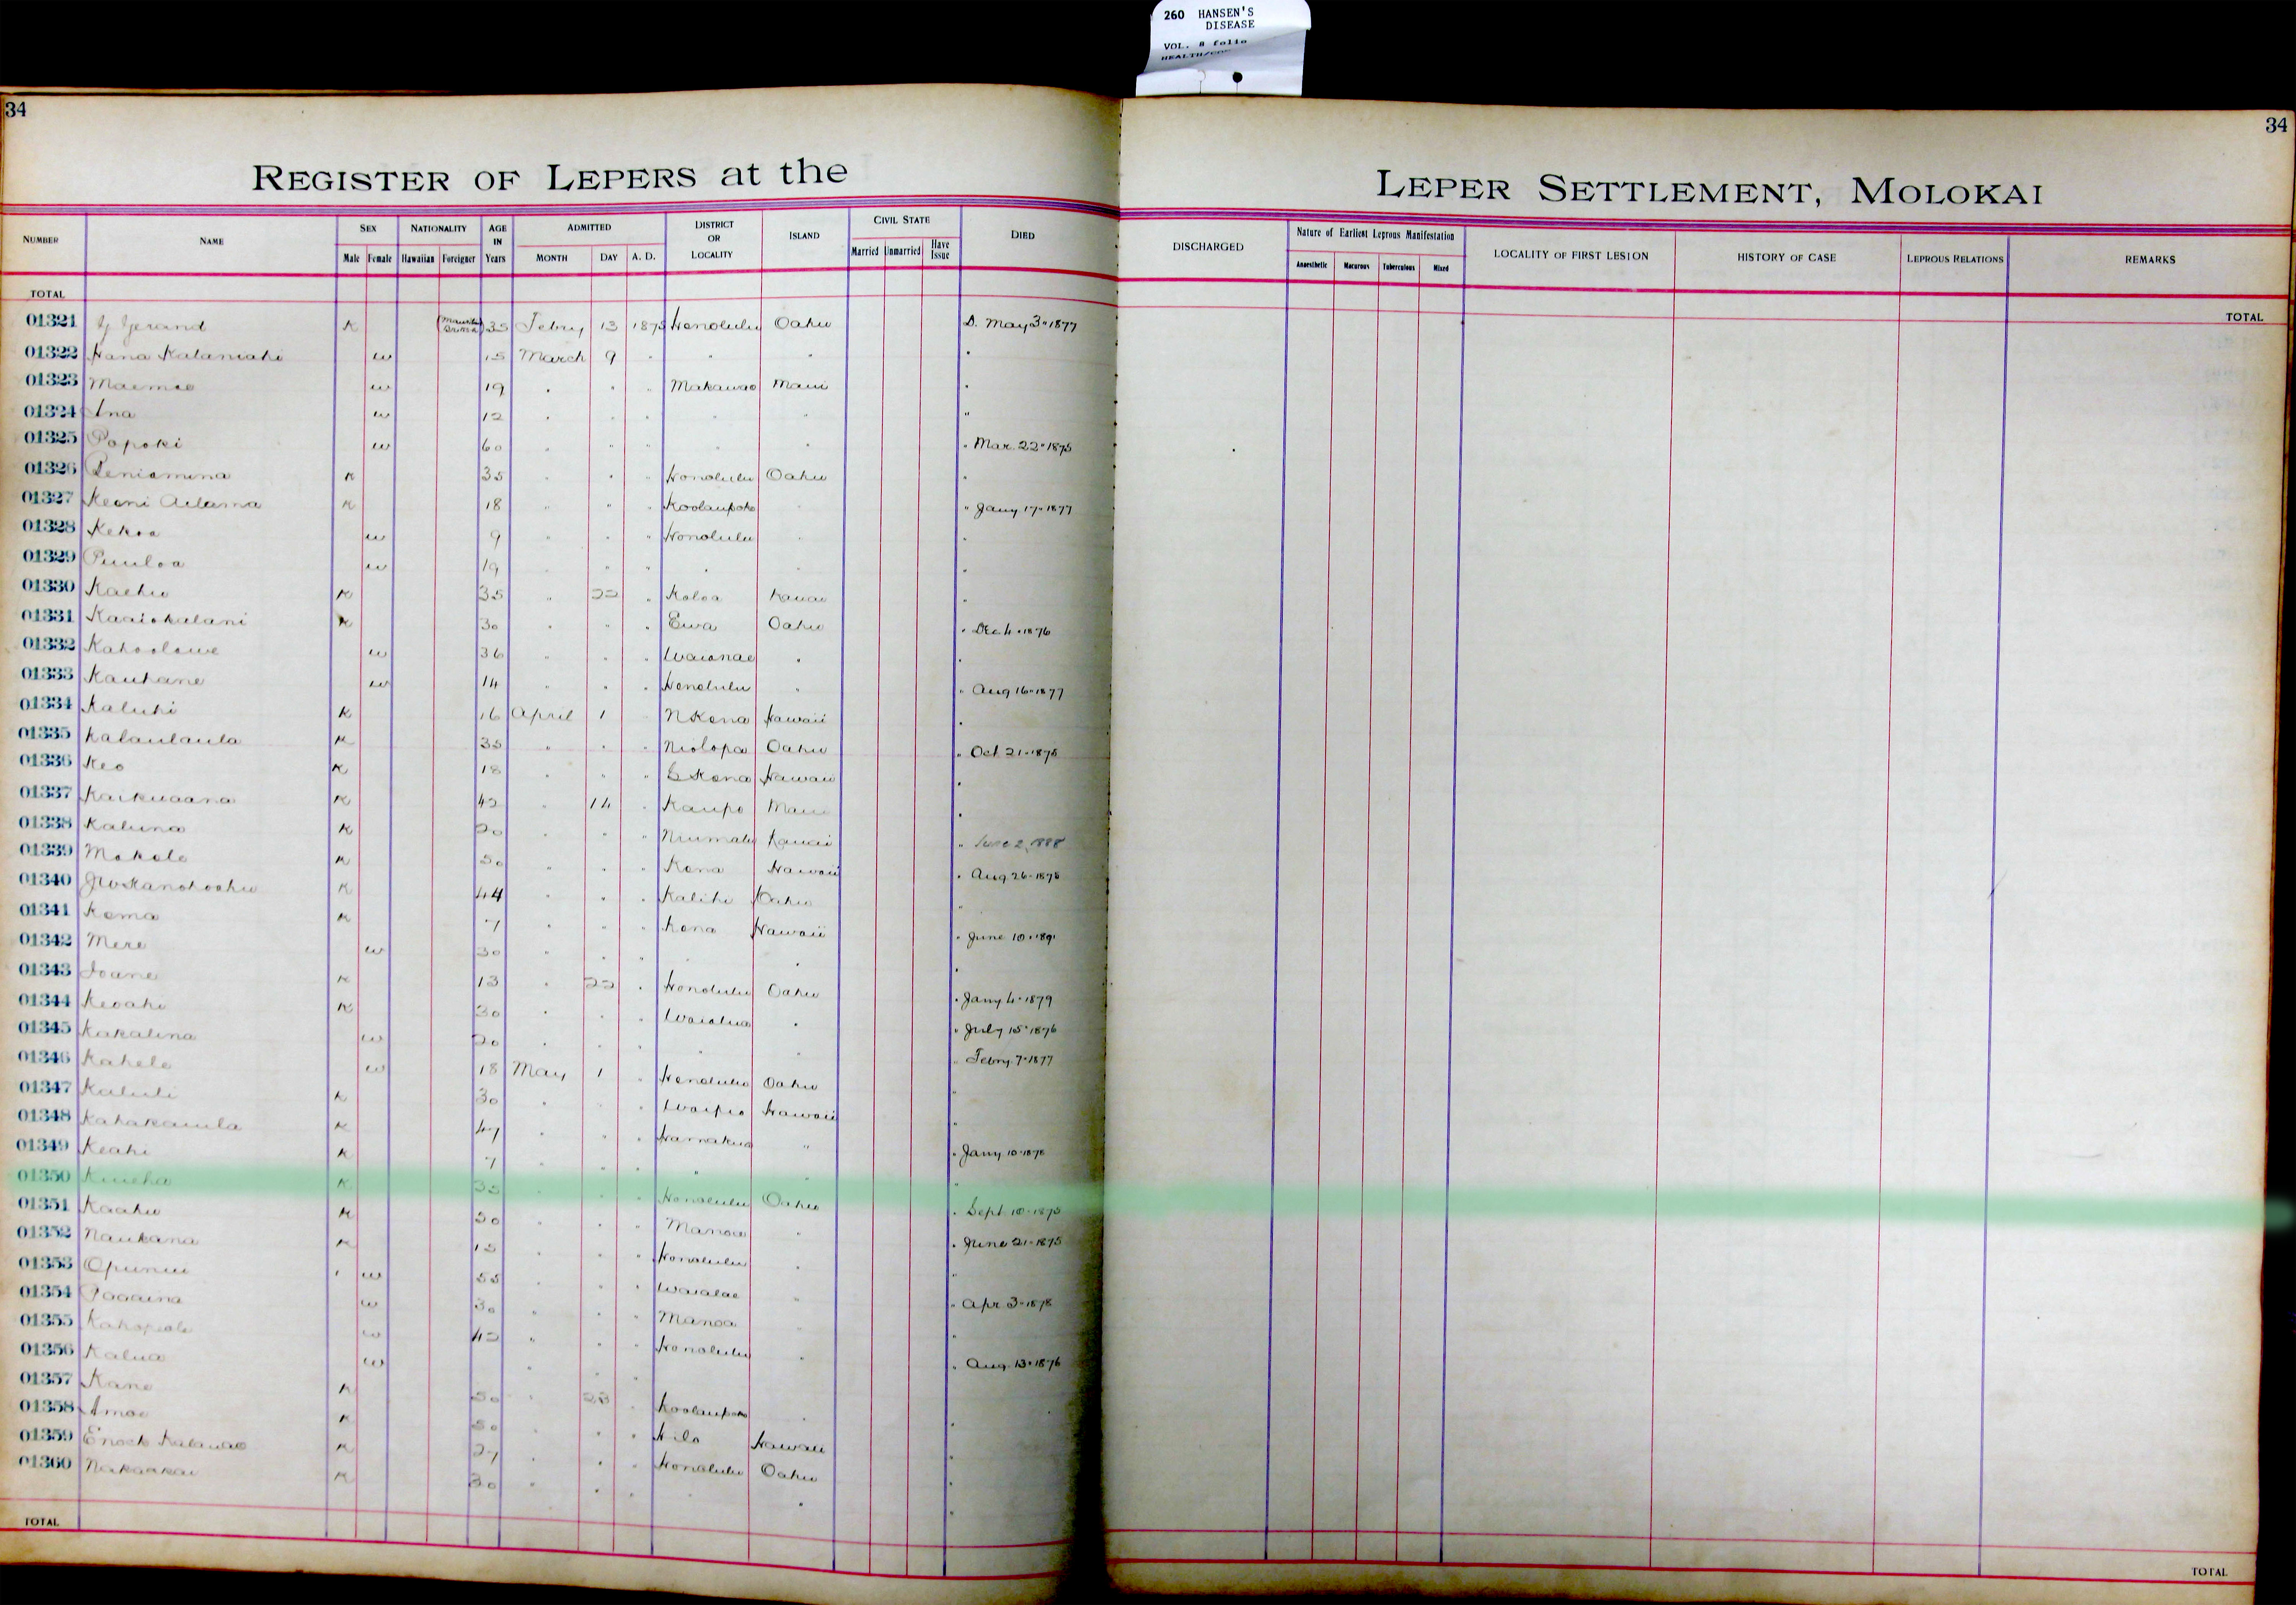 260 HANSEN'S
DISEASE
VOL. 8 folio
34
34
REGISTER OF LEPERS at the
LEPER SETTLEMENT, MOLOKAI
NUMBER NAME SEX NATIONALITY AGE IN Years ADMITTED DISTRICT OR LOCALITY ISLAND CIVIL STATE DIED
Male Female Hawaiian Foreigner MONTH DAY A. D. Married Unmarried Have Issue
DISCHARGED Nature of Earliest Leprous Manifestation LOCALITY OF FIRST LESION HISTORY OF CASE LEPROUS RELATIONS REMARKS
Anaesthetic Macurous Tuberculous Mixed
TOTAL
TOTAL
01321 K 35 Febry 13 1875 Honolulu Oahu D. May 3" 1877
01322 Hana Kalaniahi w 15 March 9 " " " "
01323 Maemae w 19 " " " Makawao Maui "
01324 Ina w 12 " " " " " "
01325 Popoki w 60 " " " " " " Mar. 22" 1875
01326 Peniamina K 35 " " " Honolulu Oahu "
01327 Keoni Adama K 18 " " " Koolaupoko " " Jany 17" 1877
01328 Kekoa w 9 " " " Honolulu " "
01329 Puuloa w 19 " " " " " "
01330 Kaehu K 35 " 22 " Koloa Kauai "
01331 Kaaiokalani K 30 " " " Ewa Oahu " Dec 4" 1876
01332 Kahoolawe w 36 " " " Waianae " "
01333 Kauhane w 14 " " " Honolulu " " Aug 16" 1877
01334 Kaluhi K 16 April 1 " N Kona Hawaii "
01335 Kalaulaula K 35 " " " Niolopa Oahu " Oct 21" 1875
01336 Keo K 18 " " " S Kona Hawaii "
01337 Kaikuaana K 42 " 14 " Kaupo Maui "
01338 Kaluna K 20 " " " Niumalu Kauai " June 2, 1888
01339 Makole K 50 " " " Kona Hawaii " Aug 26" 1878
01340 K 44 " " " Kalihi Oahu "
01341 Koma K 7 " " " Kona Hawaii " June 10" 1891
01342 Mere w 30 " " " " " "
01343 Ioane K 13 " 22 " Honolulu Oahu " Jany 4" 1879
01344 Keoahi K 30 " " " Waialua " " July 15" 1876
01345 Kakalina w 20 " " " " " " Febry 7" 1877
01346 Kahele w 18 May 1 " Honolulu Oahu "
01347 Kaluli K 30 " " " Waipio Hawaii "
01348 Kahakauila K 47 " " " Hamakua " " Jany 10" 1878
01349 Keahi K 7 " " " " " "
01350 K 35 " " " Honolulu Oahu " Sept 10" 1875
01351 Kaahu K 50 " " " Manoa " " June 21" 1875
01352 Naukana K 15 " " " Honolulu " "
01353 Opunui w 55 " " " Waialae " " Apr 3" 1878
01354 w 30 " " " Manoa " "
01355 w 42 " " " Honolulu " " Aug. 13" 1876
01356 Kalua w " " "
01357 Kane K 50 " 28 " Koolaupoko " "
01358 Amoe K 50 " " " Hilo Hawaii "
01359 Enoch Kalauao K 27 " " " Honolulu Oahu "
01360 Nakaakai K 30 " " " " " "
TOTAL
TOTAL